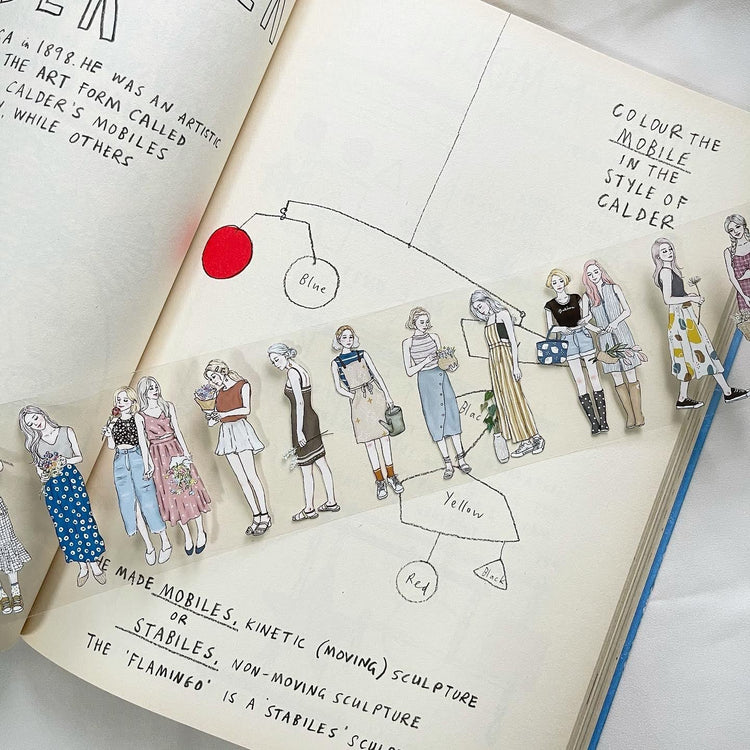 in 1898. HE WAS AN ARTISTIC
THE ART FORM CALLED
CALDER'S MOBILES
WHILE OTHERS
COLOUR THE
MOBILE
IN THE
STYLE OF
CALDER
Blue
Yellow
Red
Black
HE MADE MOBILES, KINETIC (MOVING) SCULPTURE
OR
STABILES, NON-MOVING SCULPTURE
THE 'FLAMINGO' IS A 'STABILES'